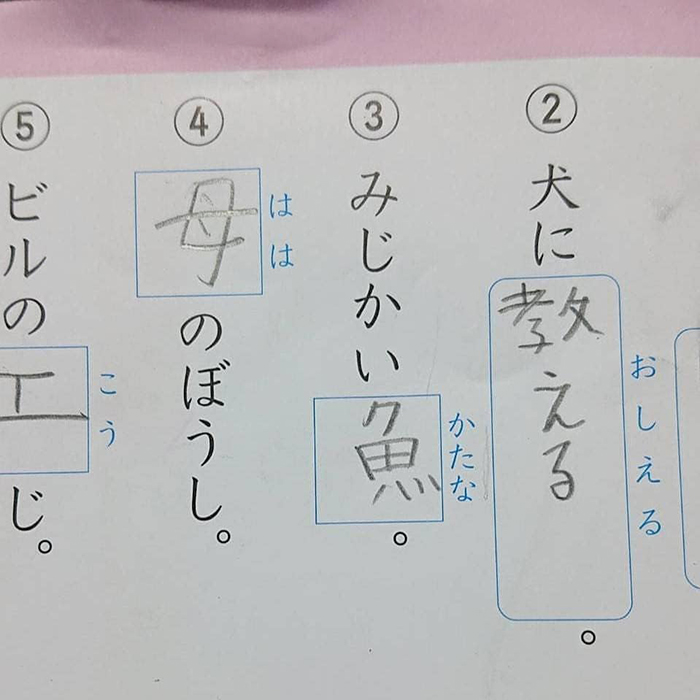 ② 犬に教える。
おしえる
③ みじかい魚。
かたな
④ 母のぼうし。
はは
⑤ ビルの工じ。
こう